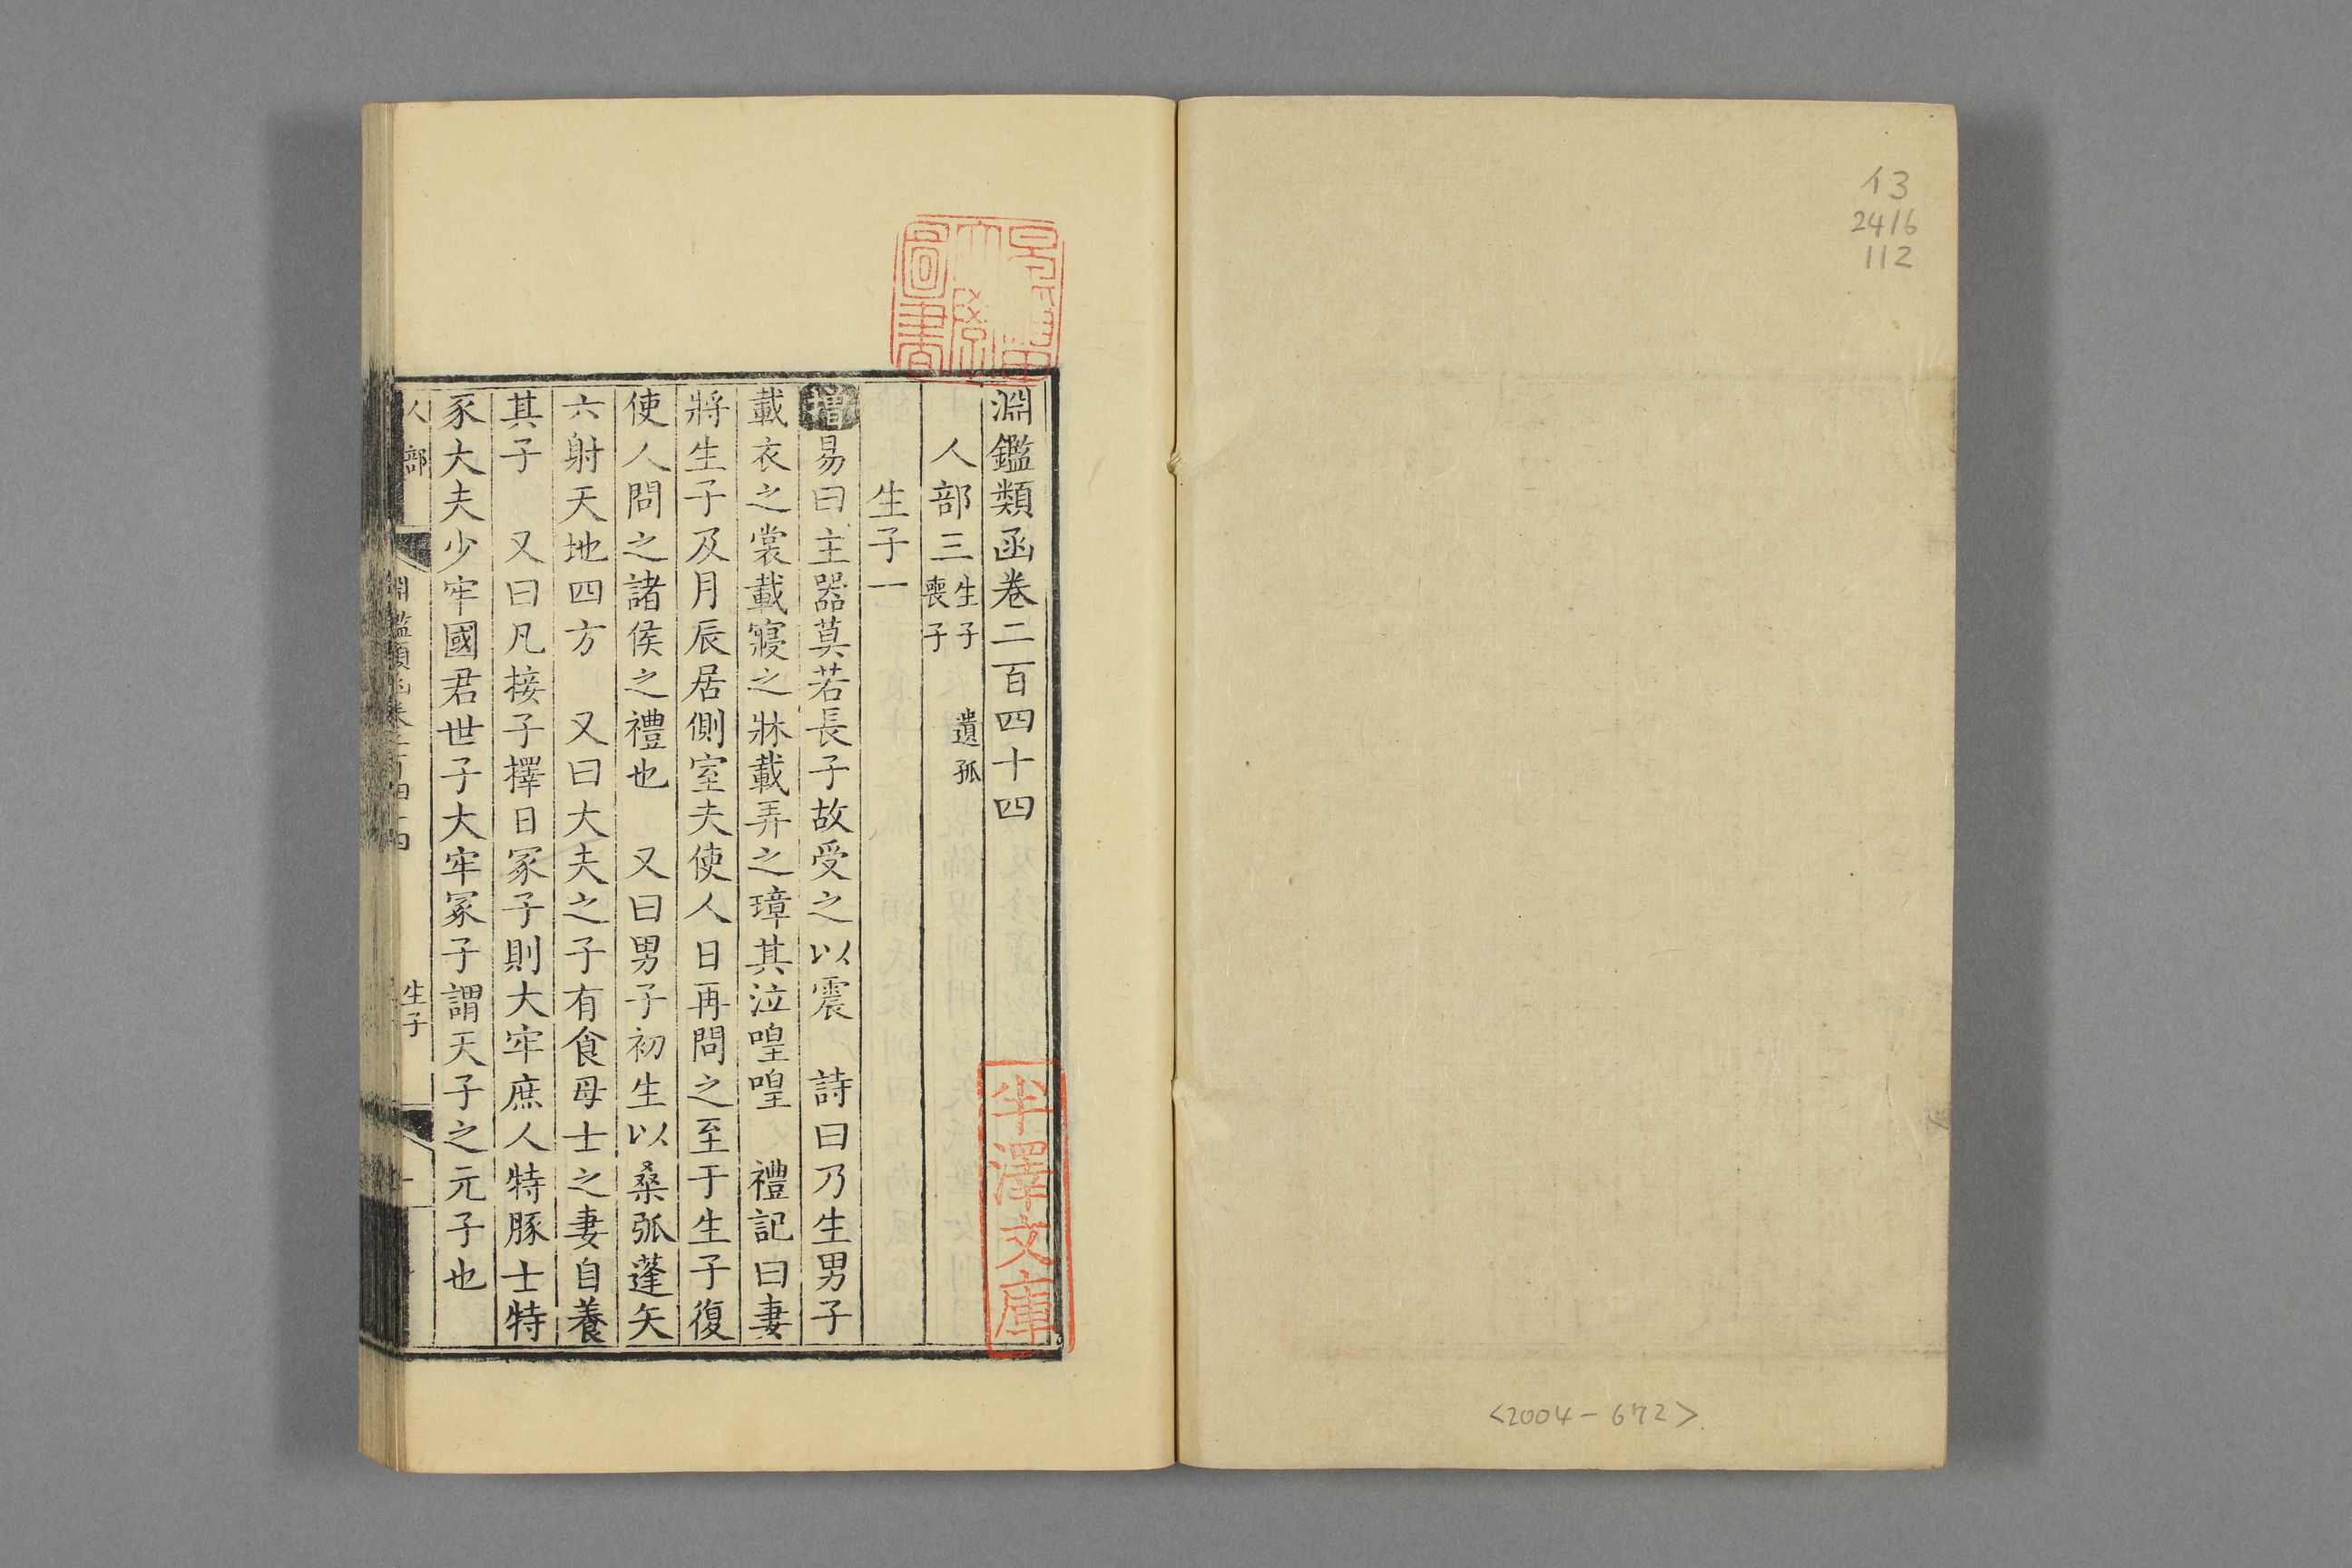 13
2416
112
<2004-672>
早稲田大學圖書
淵鑑類函卷二百四十四
半澤文庫
人部三 生子 遺孤 喪子
生子一
增易曰主器莫若長子故受之以震 詩曰乃生男子
載衣之裳載寢之牀載弄之璋其泣喤喤 禮記曰妻
將生子及月辰居側室夫使人日再問之至于生子復
使人問之諸侯之禮也 又曰男子初生以桑弧蓬矢
六射天地四方 又曰大夫之子有食母士之妻自養
其子 又曰凡接子擇日冢子則大牢庶人特豚士特
豕大夫少牢國君世子大牢冢子謂天子之元子也
人部
生子